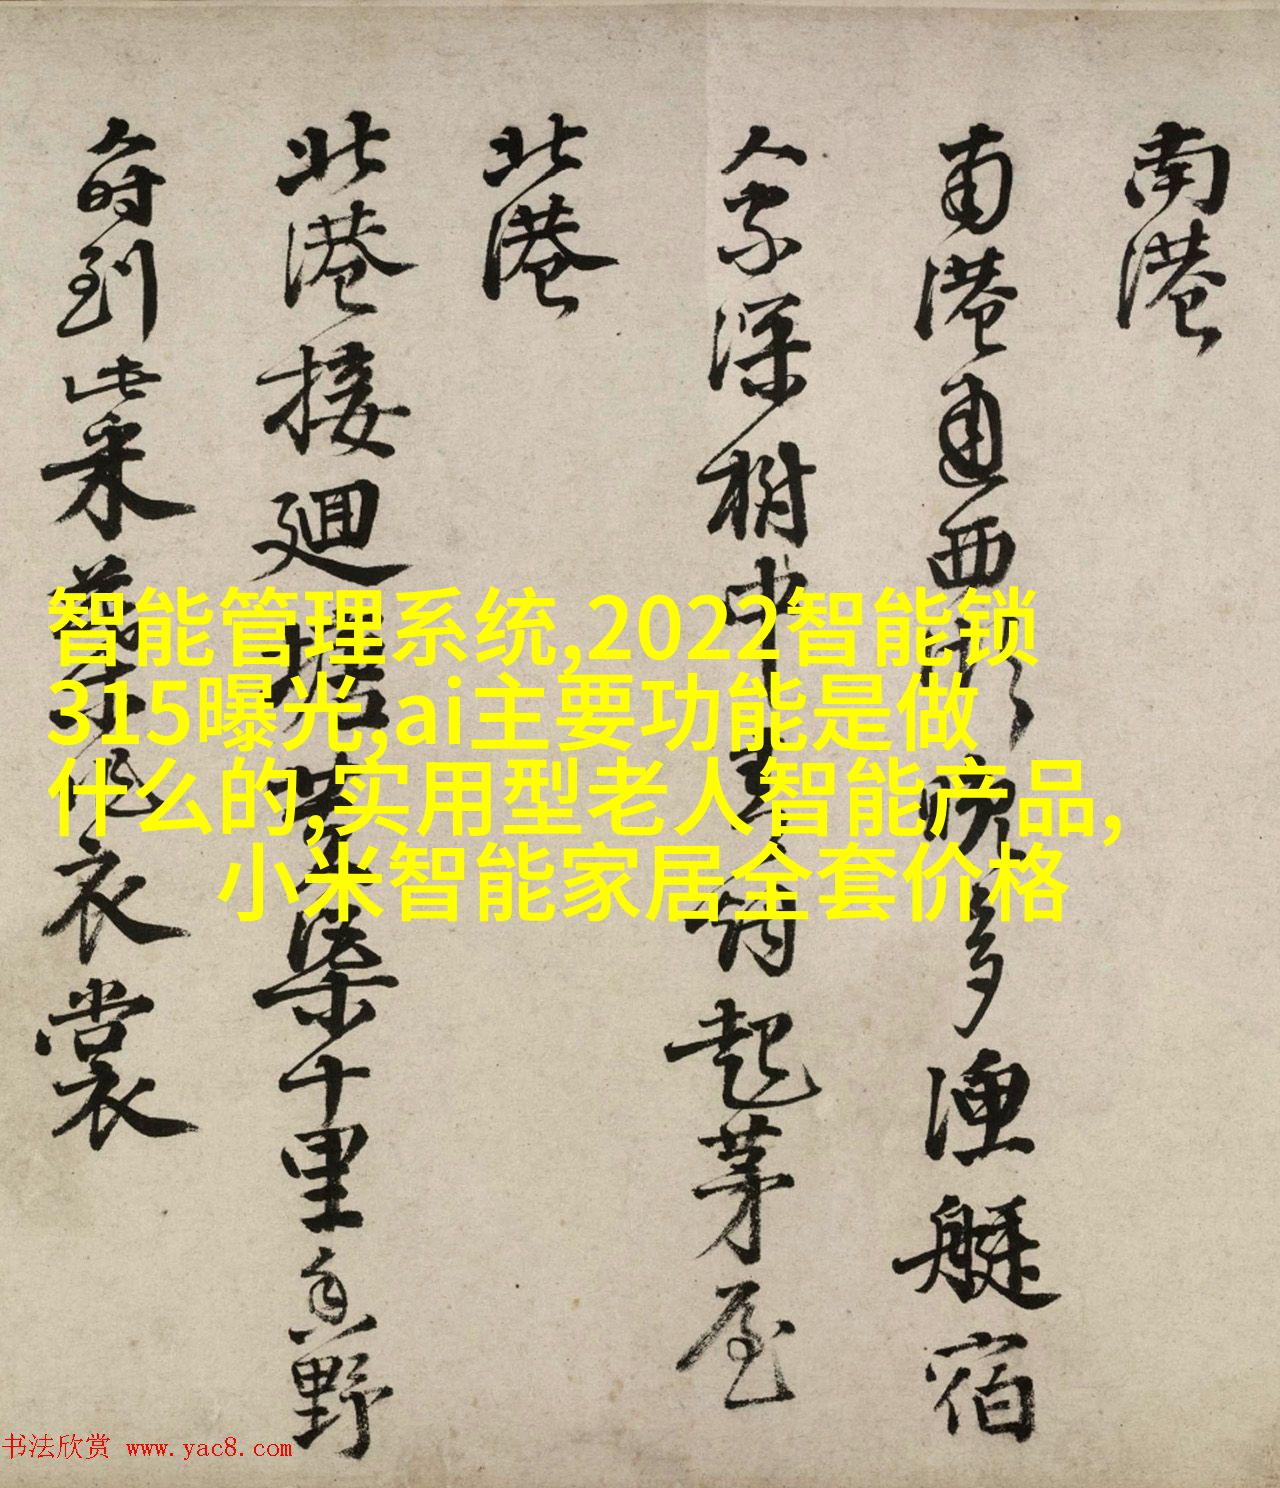 南港
南港通西晚多漁艇宿
人家深樹中起茅屋
北港
北港接迴塘渠十里香野
人時到此采衣裳
智能管理系统,2022智能锁
315曝光,ai主要功能是做
什么的,实用型老人智能产品,
小米智能家居全套价格
书法欣赏 www.yac8.com